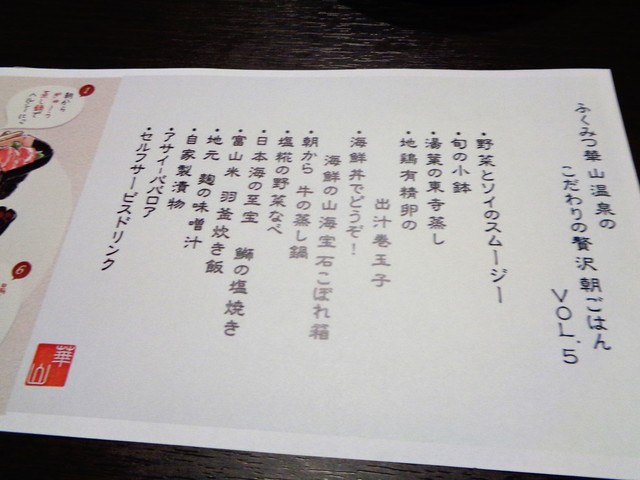 ふくみつ華山温泉の
こだわりの贅沢朝ごはん
VOL.5
・野菜とソイのスムージー
・旬の小鉢
・湯葉の東寺蒸し
・地鶏有精卵の
出汁巻玉子
・海鮮丼でどうぞ！
海鮮の山海宝石こぼれ箱
・朝から 牛の蒸し鍋
・塩糀の野菜なべ
・日本海の至宝 鰤の塩焼き
・富山米 羽釜炊き飯
・地元 麹の味噌汁
・自家製漬物
・アサイーババロア
・セルフサービスドリンク
華山
1
朝から
6